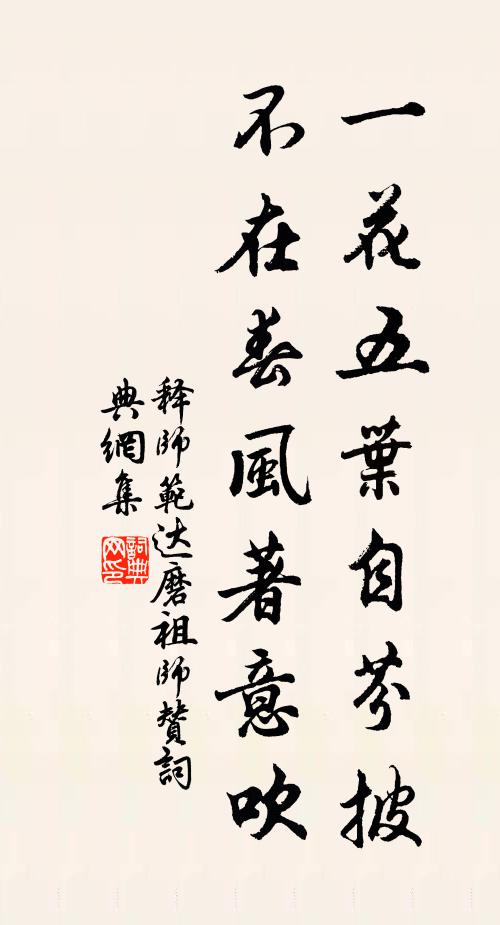 一花五葉自芬披
不在春風著意吹
释師範达磨祖師贊詞
典網集
詞典网印